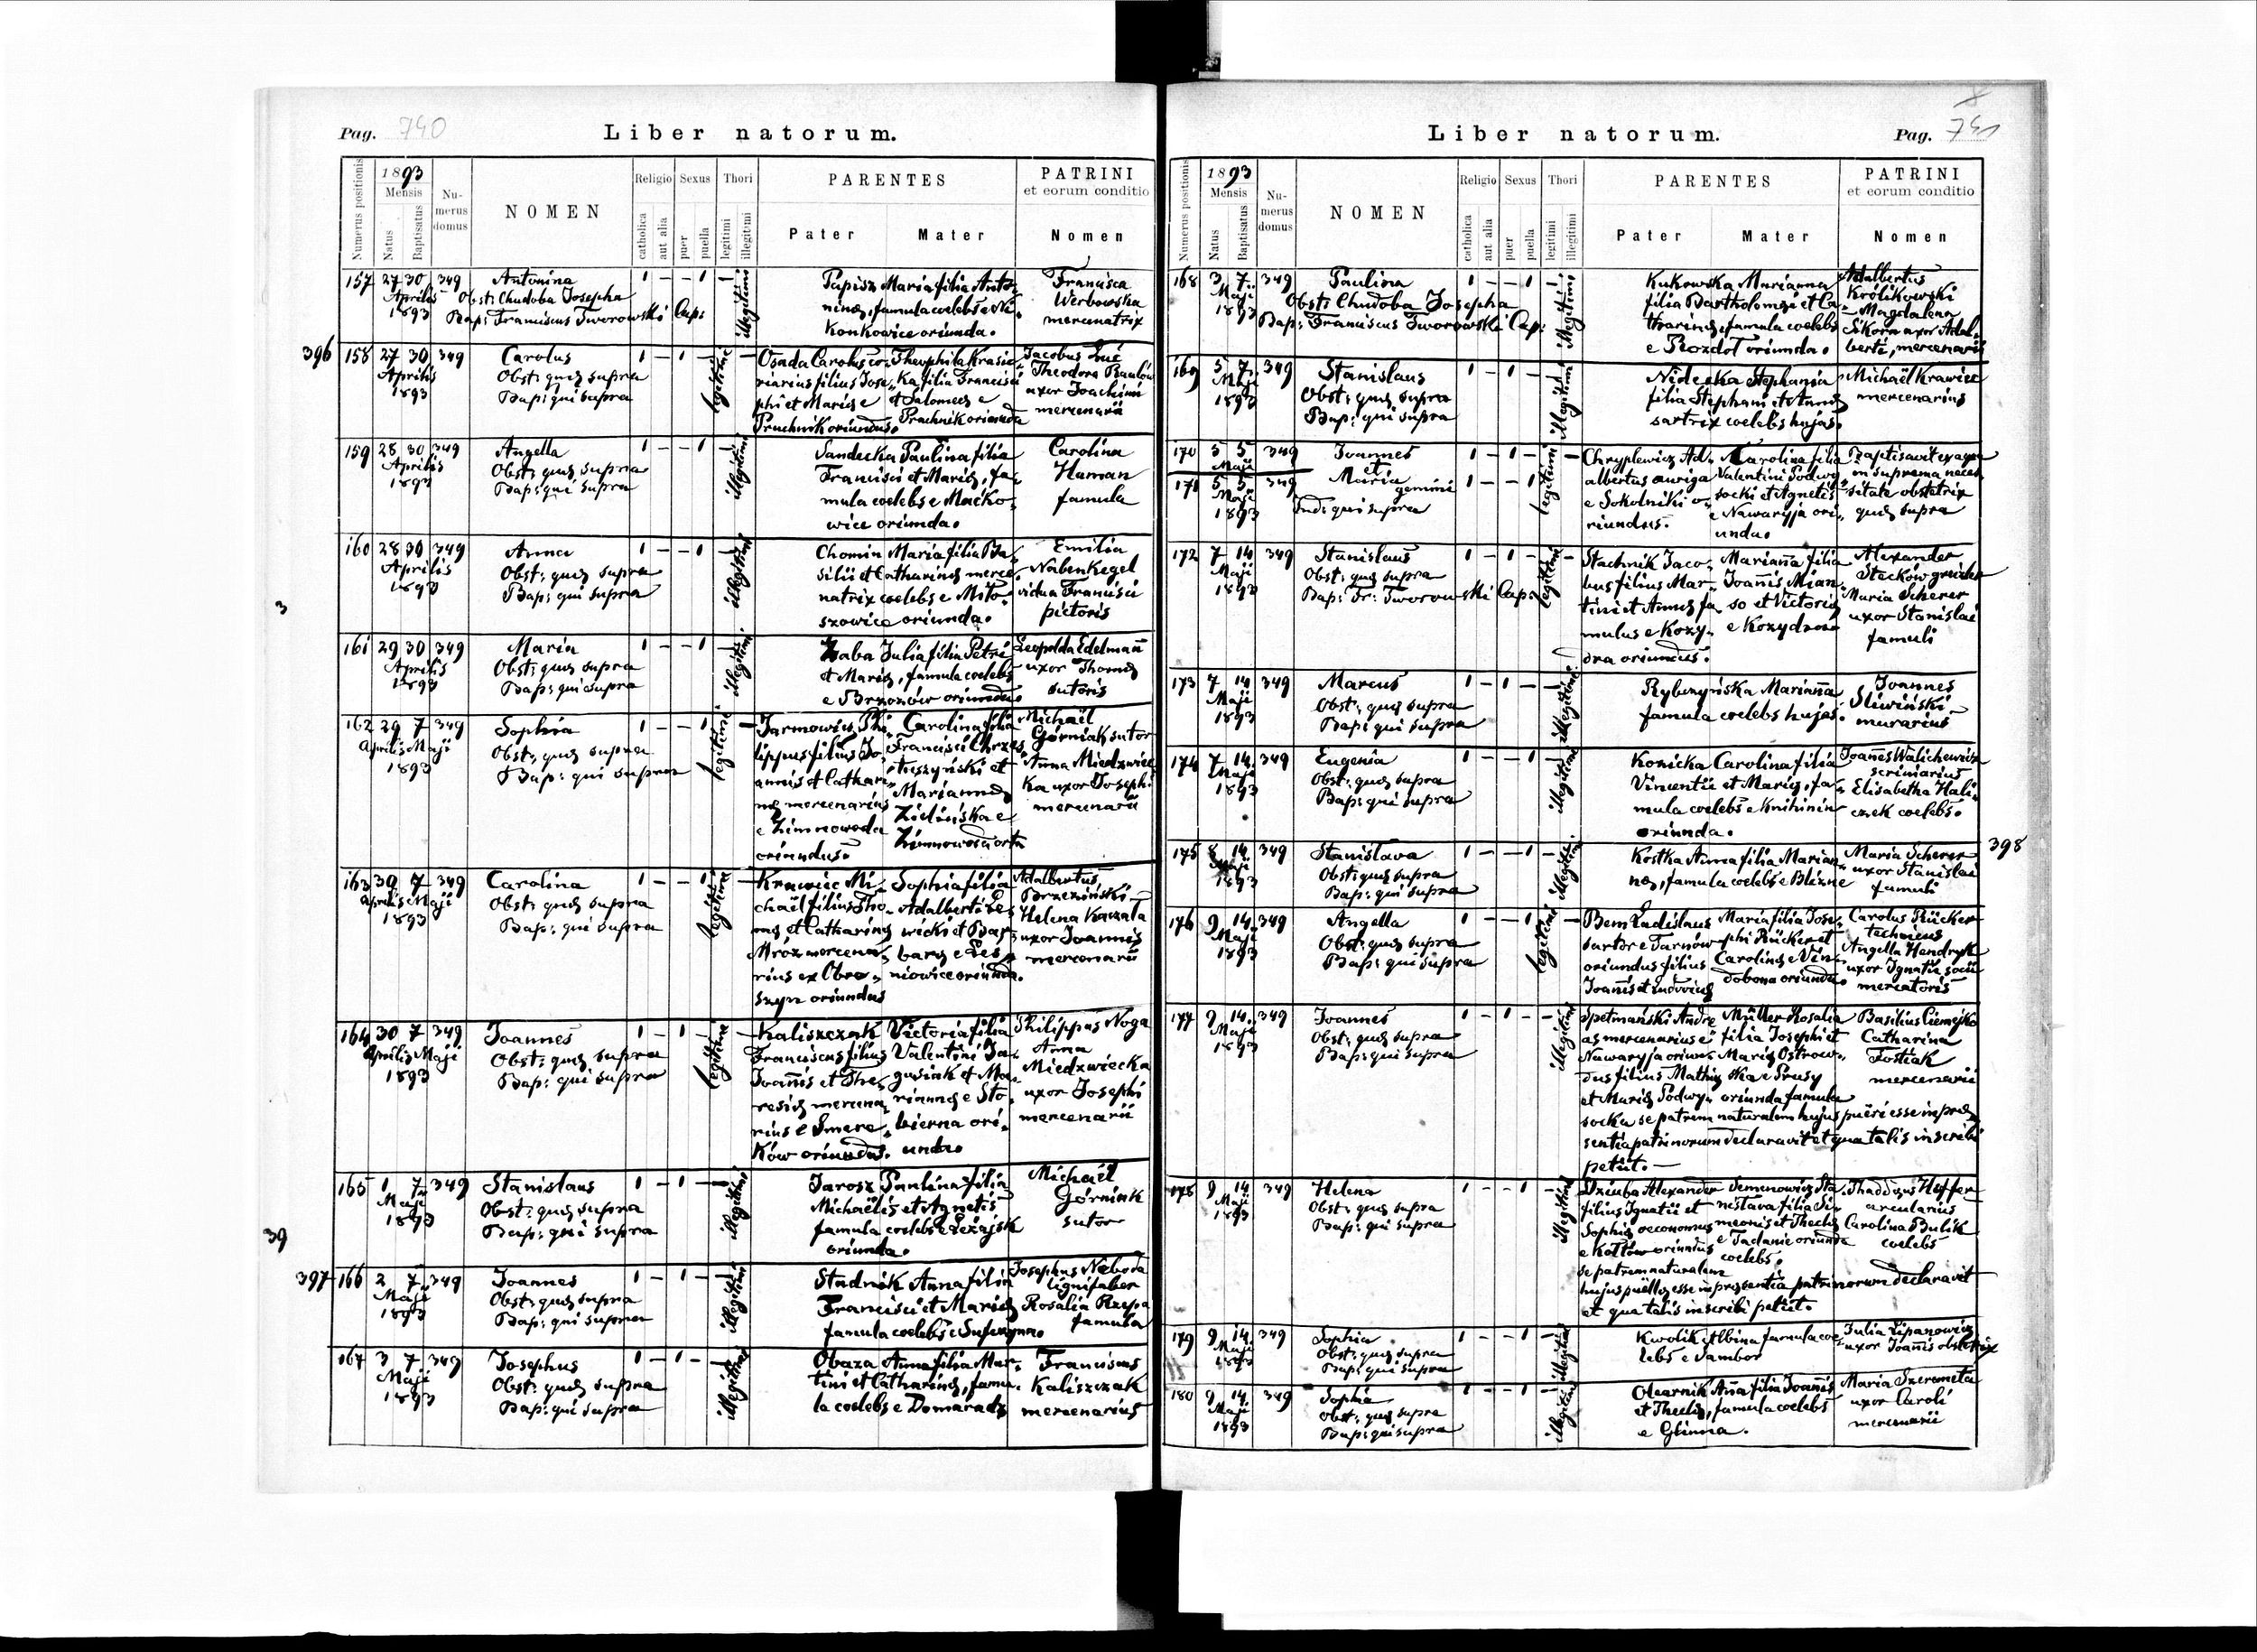 Pag. 740
Liber natorum.
Numerus positionis
1893
Mensis
Natus
Baptisatus
Numerus domus
NOMEN
Religio
catholica
aut alia
Sexus
puer
puella
Thori
legitimi
illegitimi
PARENTES
Pater
Mater
PATRINI
et eorum conditio
Nomen
157 27 30 349 Antonina 1 – – 1 –
Aprilis
1893
Obst: Chudoba Josepha
Bap: Franciscus Tworowski Cap:
illegitimi
Papisz Maria filia Anto-
ninae, famula coelebs e Ni-
konkowice oriunda.
Francisca
Werbowska
mercenatrix
396
158 27 30 349 Carolus 1 – 1 – –
Aprilis
1893
Obst: quae supra
Bap: qui supra
legitimi
Osada Carolus co-
riarius filius Jose-
phi et Mariae e
Pruchnik oriundus.
Theophila Krasic-
ka filia Francisci
et Salomeae e
Pruchnik oriunda
Jacobus
Theodora
uxor Joachimi
mercenarii
159 28 30 349 Angella 1 – – 1 –
Aprilis
1893
Obst: quae supra
Bap: qui supra
illegitimi
Sandecka Paulina filia
Francisci et Mariae, fa-
mula coelebs e Macko-
wice oriunda.
Carolina
Human
famula
160 28 30 349 Anna 1 – – 1
Aprilis
1893
Obst: quae supra
Bap: qui supra
illegitimi
Chomin Maria filia Ba-
silii et Catharinae merce-
natrix coelebs e Mito-
szowice oriunda.
Emilia
Nabenkegel
vidua Francisci
pictoris
3
161 29 30 349 Maria 1 – – 1 –
Aprilis
1893
Obst: quae supra
Bap: qui supra
illegitimi
Żaba Julia filia Petri
et Mariae, famula coelebs
e Brzozów oriunda.
Leopolda Edelmann
uxor Thomae
sutoris
162 29 7 349 Sophia 1 – – 1 –
Aprilis Maji
1893
Obst: quae supra
Bap: qui supra
legitimi
Jarmowicz Phi-
lippus filius Jo-
annis et Cathari-
nae mercenarius
e Zimnowoda
oriundus.
Carolina filia
Francisci Chrzes-
tuszyński et
Mariannae
Zielińska e
Zimnowoda orta
Michaël
Górniak sutor
Anna Miedzwiec-
ka uxor Josephi
mercenarii
163 30 7 349 Carolina 1 – – 1 –
Aprilis Maji
1893
Obst: quae supra
Bap: qui supra
legitimi
Krawiec Mi-
chaël filius Tho-
mae et Catharinae
Mróz mercena-
rius ex Obro-
szyn oriundus
Sophia filia
Adalberti Le-
wicki et Bar-
barae e Les-
niowice oriunda.
Adalbertus
Brzeziński
Helena Kaczala
uxor Joannis
mercenarii
164 30 7 349 Joannes 1 – 1 – –
Aprilis Maji
1893
Obst: quae supra
Bap: qui supra
legitimi
Kaliszczak
Franciscus filius
Joannis et The-
resiae mercena-
rius e Smere-
ków oriundus.
Victoria filia
Valentini Ja-
gusiak et Ma-
riannae e Sto-
bierna ori-
unda
Philippus Noga
Anna
Miedzwiecka
uxor Josephi
mercenarii
165 1 7 349 Stanislaus 1 – 1 – –
Maji
1893
Obst: quae supra
Bap: qui supra
illegitimi
Jarosz Paulina filia
Michaëlis et Agnetis
famula coelebs e Leżajsk
oriunda.
Michaël
Górniak
sutor
39
397
166 2 7 349 Joannes 1 – 1 – –
Maji
1893
Obst: quae supra
Bap: qui supra
illegitimi
Stadnik Anna filia
Francisci et Mariae
famula coelebs e
Josephus Nabora
lignifaber
Rosalia Rzepa
famula
167 3 7 349 Josephus 1 – 1 – –
Maji
1893
Obst: quae supra
Bap: qui supra
illegitimi
Obaza Anna filia Mar-
tini et Catharinae, famu-
la coelebs e Domaradz
Franciscus
Kaliszczak
mercenarius
Liber natorum.
Pag. 741
Numerus positionis
1893
Mensis
Natus
Baptisatus
Numerus domus
NOMEN
Religio
catholica
aut alia
Sexus
puer
puella
Thori
legitimi
illegitimi
PARENTES
Pater
Mater
PATRINI
et eorum conditio
Nomen
168 3 7 349 Paulina 1 – – 1 –
Maji
1893
Obst: Chudoba Josepha
Bap: Franciscus Tworowski Cap:
illegitimi
Kukowska Marianna
filia Bartholomaei et Ca-
tharinae, famula coelebs
e Rozdoł oriunda.
Adalbertus
Królikowski
Magdalena
Sikora uxor Adal-
berti, mercenarii
169 5 7 349 Stanislaus 1 – 1 – –
Maji
1893
Obst: quae supra
Bap: qui supra
illegitimi
Nidecka Stephania
filia Stephani et Annae
sartrix coelebs hujas.
Michaël Krawiec
mercenarius
170 5 5 349 Joannes 1 – 1 – –
Maji
et
171 5 5 349 Maria gemini 1 – – 1
Maji
1893
Ind: qui supra
legitimi
Chryplewicz Ad-
albertus auriga
e Sokolniki o-
riundus.
Carolina filia
Valentini Podwy-
socki et Agnetis
e Nawaryja ori-
unda.
Baptisavit ex aqua
in suprema neces-
sitate obstetrix
quae supra
172 7 14 349 Stanislaus 1 – 1 – –
Maji
1893
Obst: quae supra
Bap: Fr: Tworowski Cap:
legitimi
Stachnik Jaco-
bus filius Mar-
tini et Annae fa-
mulus e Kozy-
dra oriundus.
Marianna filia
Joannis Mian-
so et Victoriae
e Kozydra
Alexander
Stecków
Maria Scherer
uxor Stanislai
famuli
173 7 14 349 Marcus 1 – 1 – –
Maji
1893
Obst: quae supra
Bap: qui supra
illegitimi
Rybczyńska Marianna
famula coelebs hujas.
Joannes
Sliwiński
murarius
174 7 14 349 Eugenia 1 – – 1 –
Maji
1893
Obst: quae supra
Bap: qui supra
illegitimi
Konicka Carolina filia
Vincentii et Mariae, fa-
mula coelebs e Knihinin
oriunda.
Joannes Walichewicz
scriniarius
Elisabetha Hali-
czek coelebs.
398
175 8 14 349 Stanislava 1 – – 1 –
Maji
1893
Obst: quae supra
Bap: qui supra
illegitimi
Kostka Anna filia Marian-
nae, famula coelebs e Blizne
Maria Scherer
uxor Stanislai
famuli
176 9 14 349 Angella 1 – – 1 –
Maji
1893
Obst: quae supra
Bap: qui supra
legitimi
Bem Ladislaus
sartor e Tarnów
oriundus filius
Joannis et Ludovicae
Maria filia Jose-
phi Rücker et
Carolinae e Vin-
dobona oriunda.
Carolus Rücker
technicus
Angella Hendryk
uxor Ignatii socii
mercatoris
177 9 14 349 Joannes 1 – 1 – –
Maji
1893
Obst: quae supra
Bap: qui supra
illegitimi
Spetmański Andre-
as mercenarius e
Nawaryja oriun-
dus filius Mathiae
et Mariae Podwy-
socka se patrem naturalem hujus pueri esse in prae-
sentia patrinorum declaravit et qua talis inscribi
petiit. –
Müller Rosalia
filia Josephi et
Mariae Ostrow-
ska e Prusy
oriunda famula
Basilius Ciemejko
Catharina
Fostiak
mercenarii
178 9 14 349 Helena 1 – – 1 –
Maji
1893
Obst: quae supra
Bap: qui supra
illegitimi
Dziuba Alexander
filius Ignatii et
Sophiae oeconomus
e Kołtów oriundus
se patrem naturalem
hujus puellae esse in praesentia patrinorum declaravit
et qua talis inscribi petiit.
Semenowicz Sta-
nislava filia Si-
meonis et Theclae
e Tadanie oriunda
coelebs.
Thaddaeus Heffer
arcularius
Carolina Bulik
coelebs
179 9 14 349 Sophia 1 – – 1 –
Maji
1893
Obst: quae supra
Bap: qui supra
illegitimi
Kwolik Albina famula coe-
lebs e Sambor
Julia Lipanowicz
uxor Joannis obstetrix
180 9 14 349 Sophia 1 – – 1 –
Maji
1893
Obst: quae supra
Bap: qui supra
illegitimi
Olearnik Anna filia Joannis
et Theclae, famula coelebs
e Glinna.
Maria Szeremeta
uxor Caroli
mercenarii